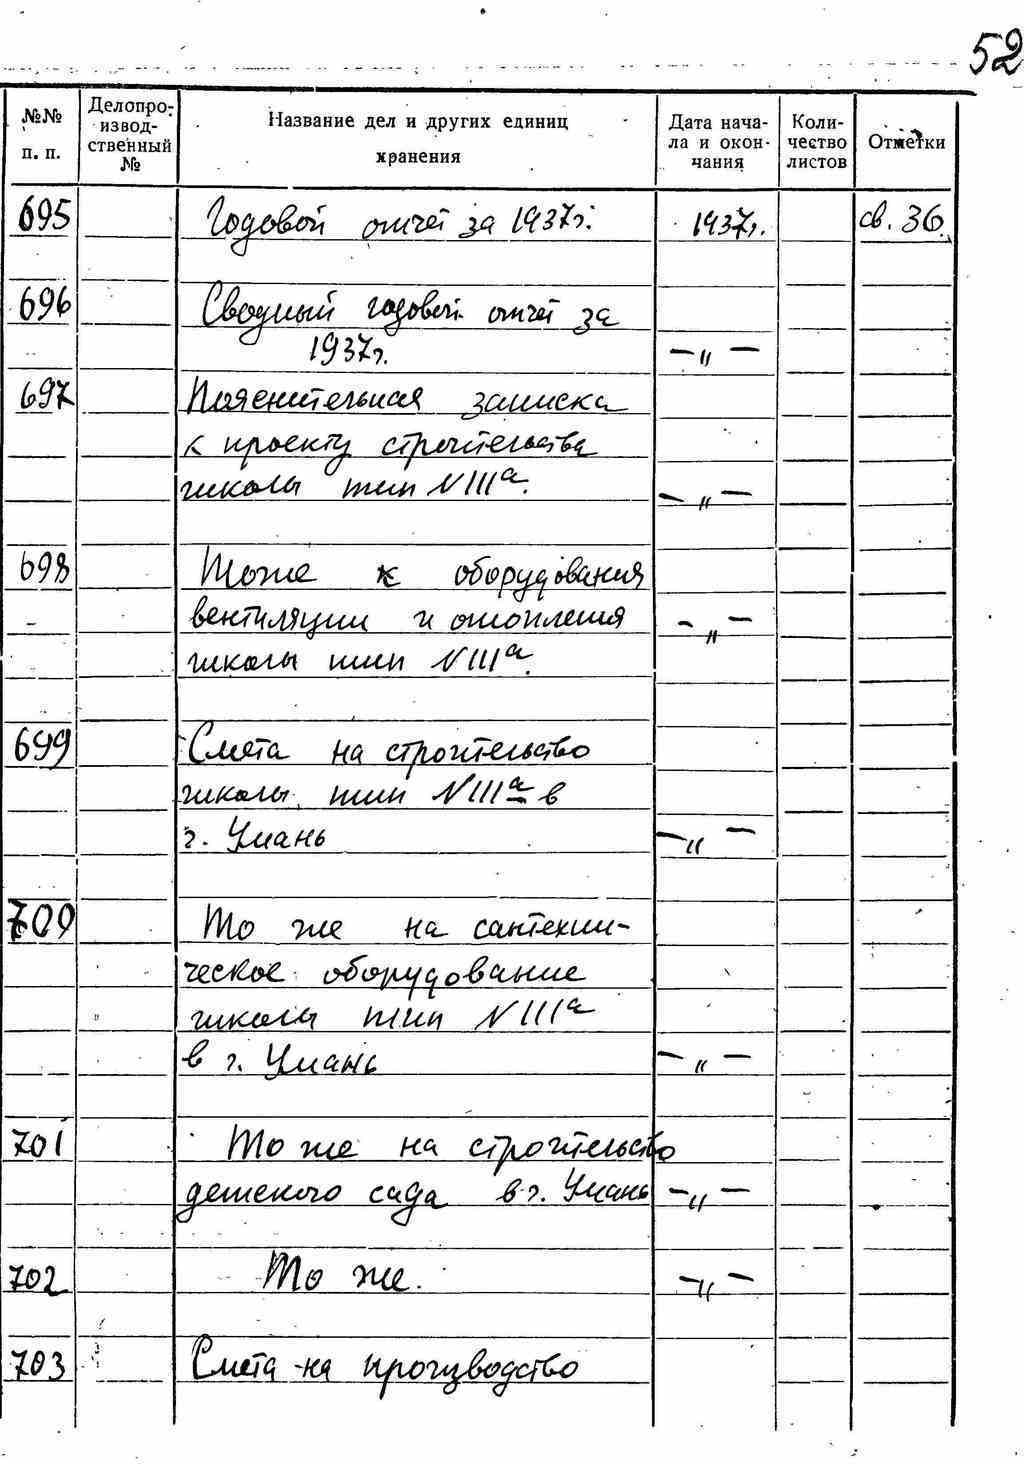 52
№№ п. п.
Делопро-
извод-
ственный
№
Название дел и других единиц
хранения
Дата нача-
ла и окон-
чания
Коли-
чество
листов
Отметки
695 Годовой отчет за 1937г. 1937г. св. 36.
696 Сводный годовой отчет за
1937г. —„—
697 Пояснительная записка
к проекту строительства
школы тип NIIIа. —„—
698 Тоже к оборудования
вентиляции и отопления —„—
школы тип NIIIа.
699 Смета на строительство
школы тип NIIIа в
г. Умань —„—
700 То же на сантехни-
ческое оборудование
школы тип NIIIа
в г. Умань —„—
701 То же на строительство
детского сада в г. Умань —„—
702 То же. —„—
703 Смета на производство